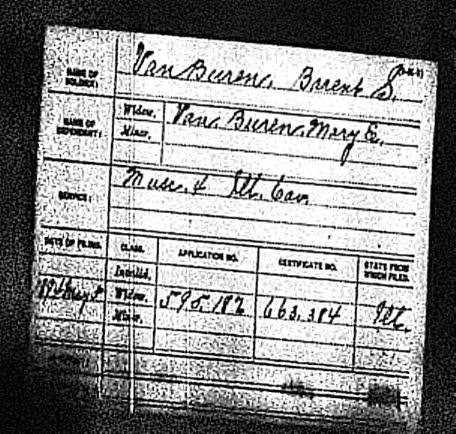 (3-11-1)
NAME OF SOLDIER: Van Buren, Brent S.
NAME OF DEPENDENT: Widow, Van Buren, Mary E.
Minor,
SERVICE: Musc. & Ill. Cav.
DATE OF FILING. CLASS. APPLICATION NO. CERTIFICATE NO. STATE FROM WHICH FILED.
Invalid,
May Widow, 595.182 663.384 Ill.
Minor,